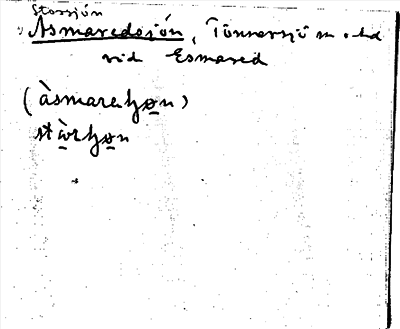 Storsjön
Åsmaredsjön, Tönnersjö sn o. hd
vid Esmared
(àsmarehøn)
stòrhøn